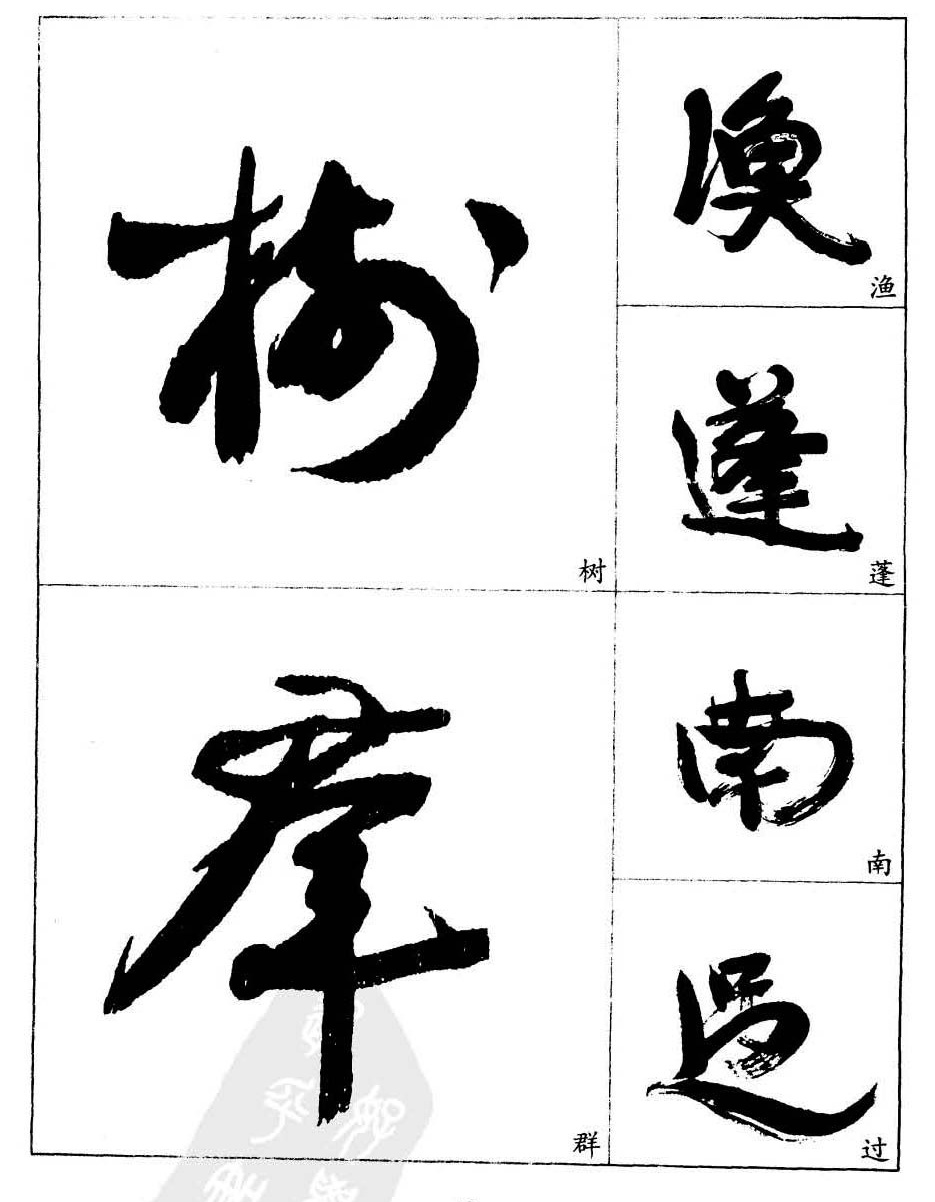 樹
树
羣
群
漁
渔
蓬
蓬
南
南
過
过